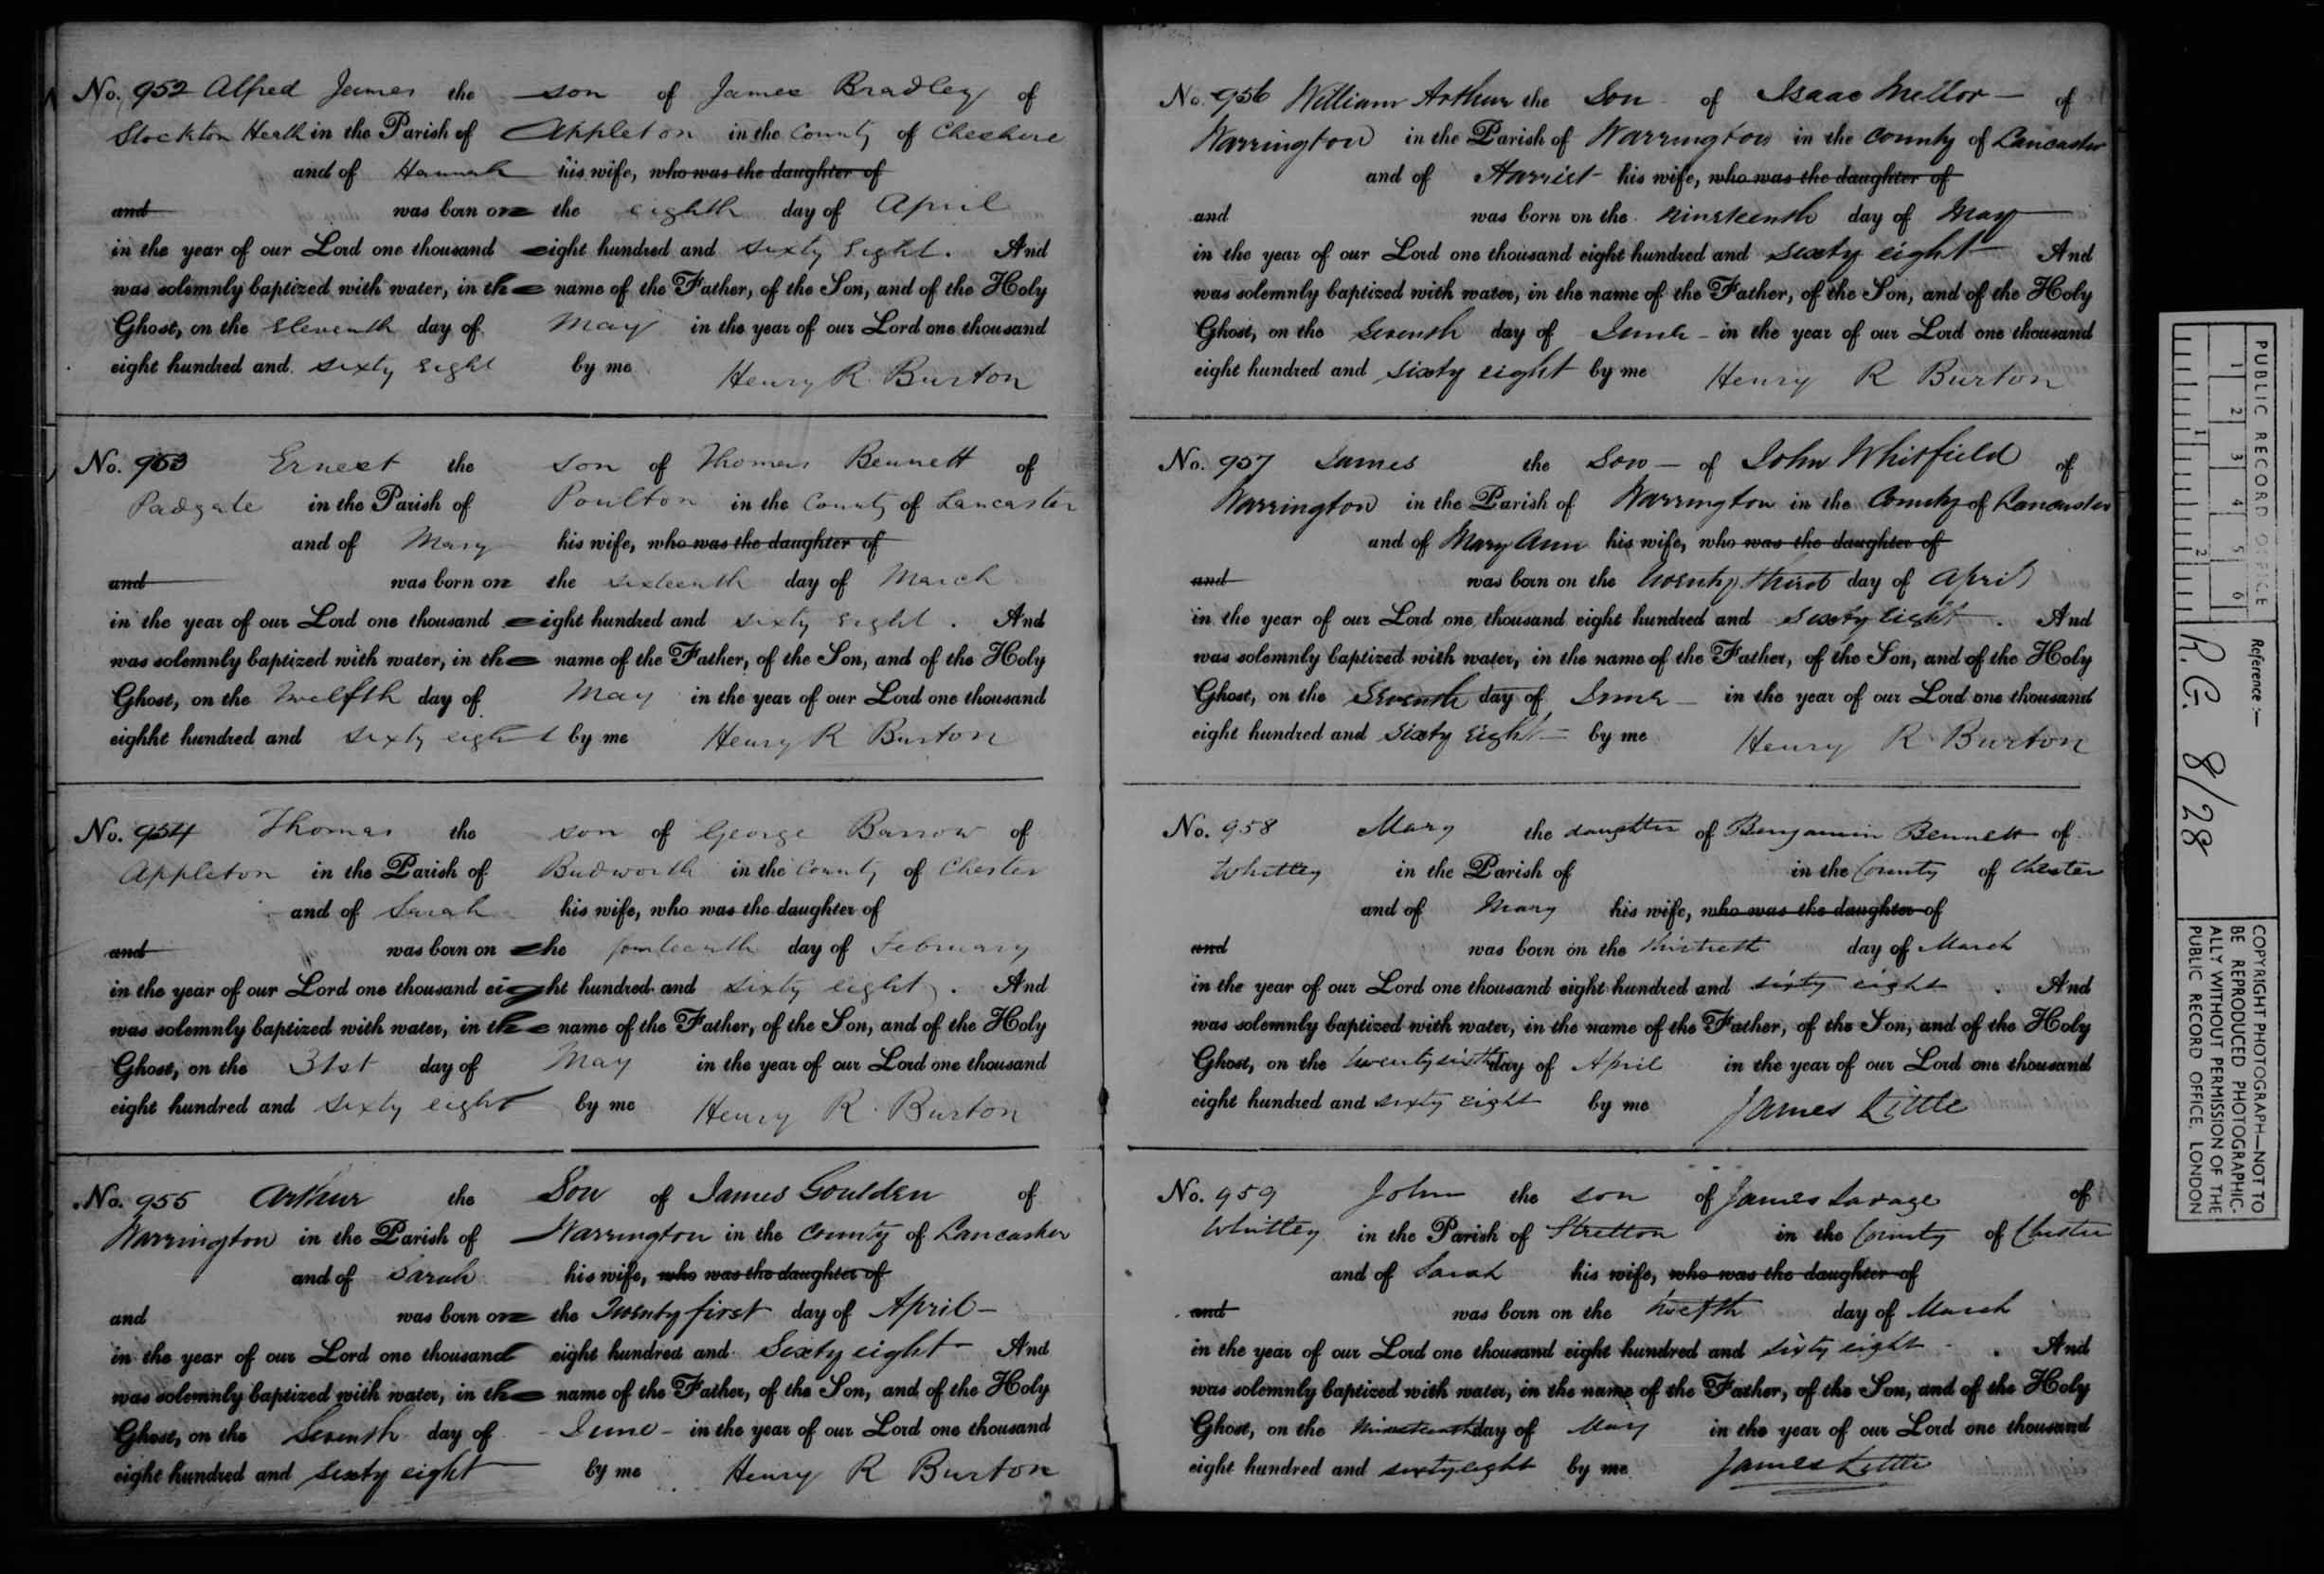 No. 952 Alfred James the son of James Bradley of
Stockton Heath in the Parish of Appleton in the County of Cheshire
and of Hannah his wife, who was the daughter of
and was born on the eighth day of April
in the year of our Lord one thousand eight hundred and sixty Eight. And
was solemnly baptized with water, in the name of the Father, of the Son, and of the Holy
Ghost, on the Eleventh day of May in the year of our Lord one thousand
eight hundred and sixty Eight by me Henry R. Burton
No. 953 Ernest the son of Thomas Bennett of
Padgate in the Parish of Poulton in the County of Lancaster
and of Mary his wife, who was the daughter of
and was born on the sixteenth day of March
in the year of our Lord one thousand eight hundred and sixty Eight. And
was solemnly baptized with water, in the name of the Father, of the Son, and of the Holy
Ghost, on the Twelfth day of May in the year of our Lord one thousand
eighht hundred and sixty eight by me Henry R Burton
No. 954 Thomas the son of George Barrow of
Appleton in the Parish of Budworth in the County of Chester
and of Sarah his wife, who was the daughter of
and was born on the fourteenth day of February
in the year of our Lord one thousand eight hundred and sixty eight. And
was solemnly baptized with water, in the name of the Father, of the Son, and of the Holy
Ghost, on the 31st day of May in the year of our Lord one thousand
eight hundred and sixty eight by me Henry R. Burton
No. 955 Arthur the Son of James Goulden of
Warrington in the Parish of Warrington in the County of Lancaster
and of Sarah his wife, who was the daughter of
and was born on the Twenty first day of April
in the year of our Lord one thousand eight hundred and Sixty eight And
was solemnly baptized with water, in the name of the Father, of the Son, and of the Holy
Ghost, on the Seventh day of June in the year of our Lord one thousand
eight hundred and sixty eight by me Henry R Burton
No. 956 William Arthur the Son of Isaac Mellor of
Warrington in the Parish of Warrington in the county of Lancaster
and of Harriet his wife, who was the daughter of
and was born on the nineteenth day of May
in the year of our Lord one thousand eight hundred and sixty eight And
was solemnly baptized with water, in the name of the Father, of the Son, and of the Holy
Ghost, on the Seventh day of June in the year of our Lord one thousand
eight hundred and sixty eight by me Henry R Burton
No. 957 James the Son of John Whitfield of
Warrington in the Parish of Warrington in the County of Lancaster
and of Mary Ann his wife, who was the daughter of
and was born on the twenty third day of April
in the year of our Lord one thousand eight hundred and sixty eight. And
was solemnly baptized with water, in the name of the Father, of the Son, and of the Holy
Ghost, on the Seventh day of June in the year of our Lord one thousand
eight hundred and Sixty Eight by me Henry R Burton
No. 958 Mary the daughter of Benjamin Bennett of
Whitley in the Parish of in the County of Chester
and of Mary his wife, who was the daughter of
and was born on the thirtieth day of March
in the year of our Lord one thousand eight hundred and sixty eight. And
was solemnly baptized with water, in the name of the Father, of the Son, and of the Holy
Ghost, on the twenty sixth day of April in the year of our Lord one thousand
eight hundred and sixty eight by me James Little
No. 959 John the son of James Savage of
Whitley in the Parish of Stretton in the County of Chester
and of Sarah his wife, who was the daughter of
and was born on the twelfth day of March
in the year of our Lord one thousand eight hundred and sixty eight. And
was solemnly baptized with water, in the name of the Father, of the Son, and of the Holy
Ghost, on the Nineteenth day of May in the year of our Lord one thousand
eight hundred and sixty eight by me James Little
PUBLIC RECORD OFFICE
1 2 3 4 5 6
1 2
Reference:-
R.G. 8/28
COPYRIGHT PHOTOGRAPH—NOT TO
BE REPRODUCED PHOTOGRAPHIC-
ALLY WITHOUT PERMISSION OF THE
PUBLIC RECORD OFFICE, LONDON